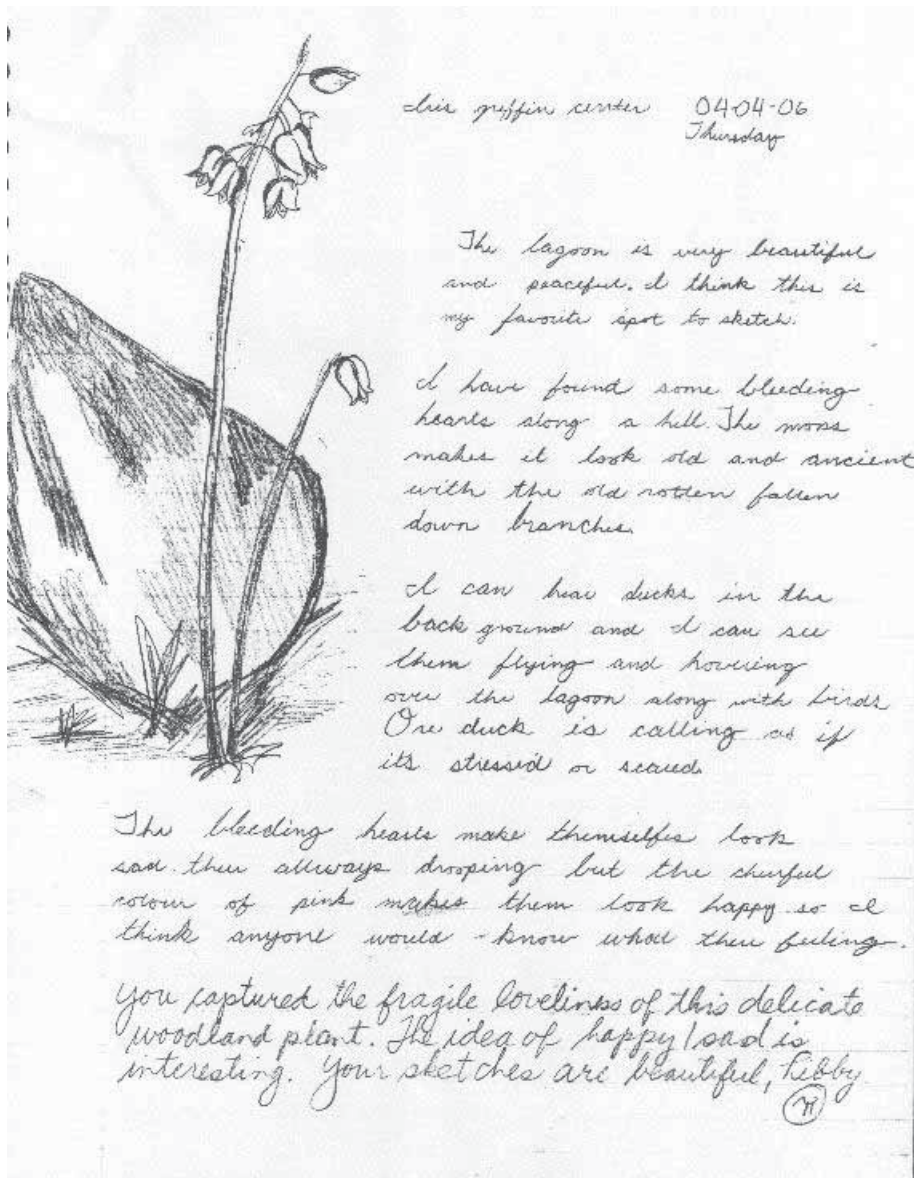 Iris griffin center 04-04-06
Thursday
The lagoon is very beautiful
and peaceful. I think this is
my favorite spot to sketch.
I have found some bleeding
hearts along a hill. The moss
makes it look old and ancient
with the old rotten fallen
down branches.
I can hear ducks in the
back ground and I can see
them flying and hovering
over the lagoon along with birds
One duck is calling as if
its stressed or scared.
The bleeding hearts make themselfes look
sad. their allways drooping but the cheerful
colour of pink makes them look happy so I
think anyone would - know what their feeling.
You captured the fragile loveliness of this delicate
woodland plant. The idea of happy/sad is
interesting. Your sketches are beautiful, Libby